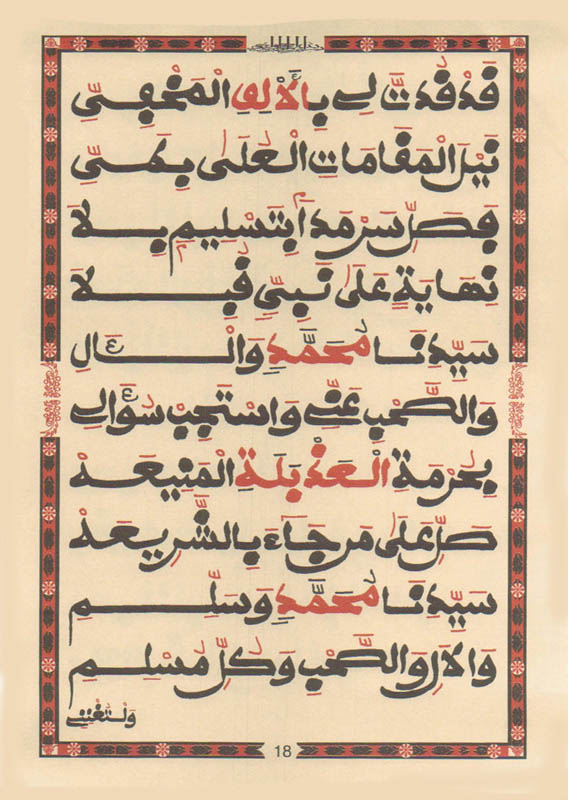 قَدْ قُدْتَ لِي بِالْأَلِفِ الْمَخْفِيِّ
نَيْلَ الْمَقَامَاتِ الْعُلَى
فَصَلِّ سَرْمَدًا بِتَسْلِيمٍ بِلَا
نِهَايَةٍ عَلَى نَبِيٍّ قَبِلَا
سَيِّدِنَا مُحَمَّدٍ وَالْآلِ
وَالصَّحْبِ عَنِّي وَاسْتَجِبْ سُؤَالِي
بِحُرْمَةِ الْعَذْبَلَةِ الْمَنِيعَهْ
صَلِّ عَلَى مَن جَاءَ بِالشَّرِيعَهْ
سَيِّدِنَا مُحَمَّدٍ وَسَلِّمِ
وَالْآلِ وَالصَّحْبِ وَكُلِّ مُسْلِمِ
وَلْتُغْنِنِي
18